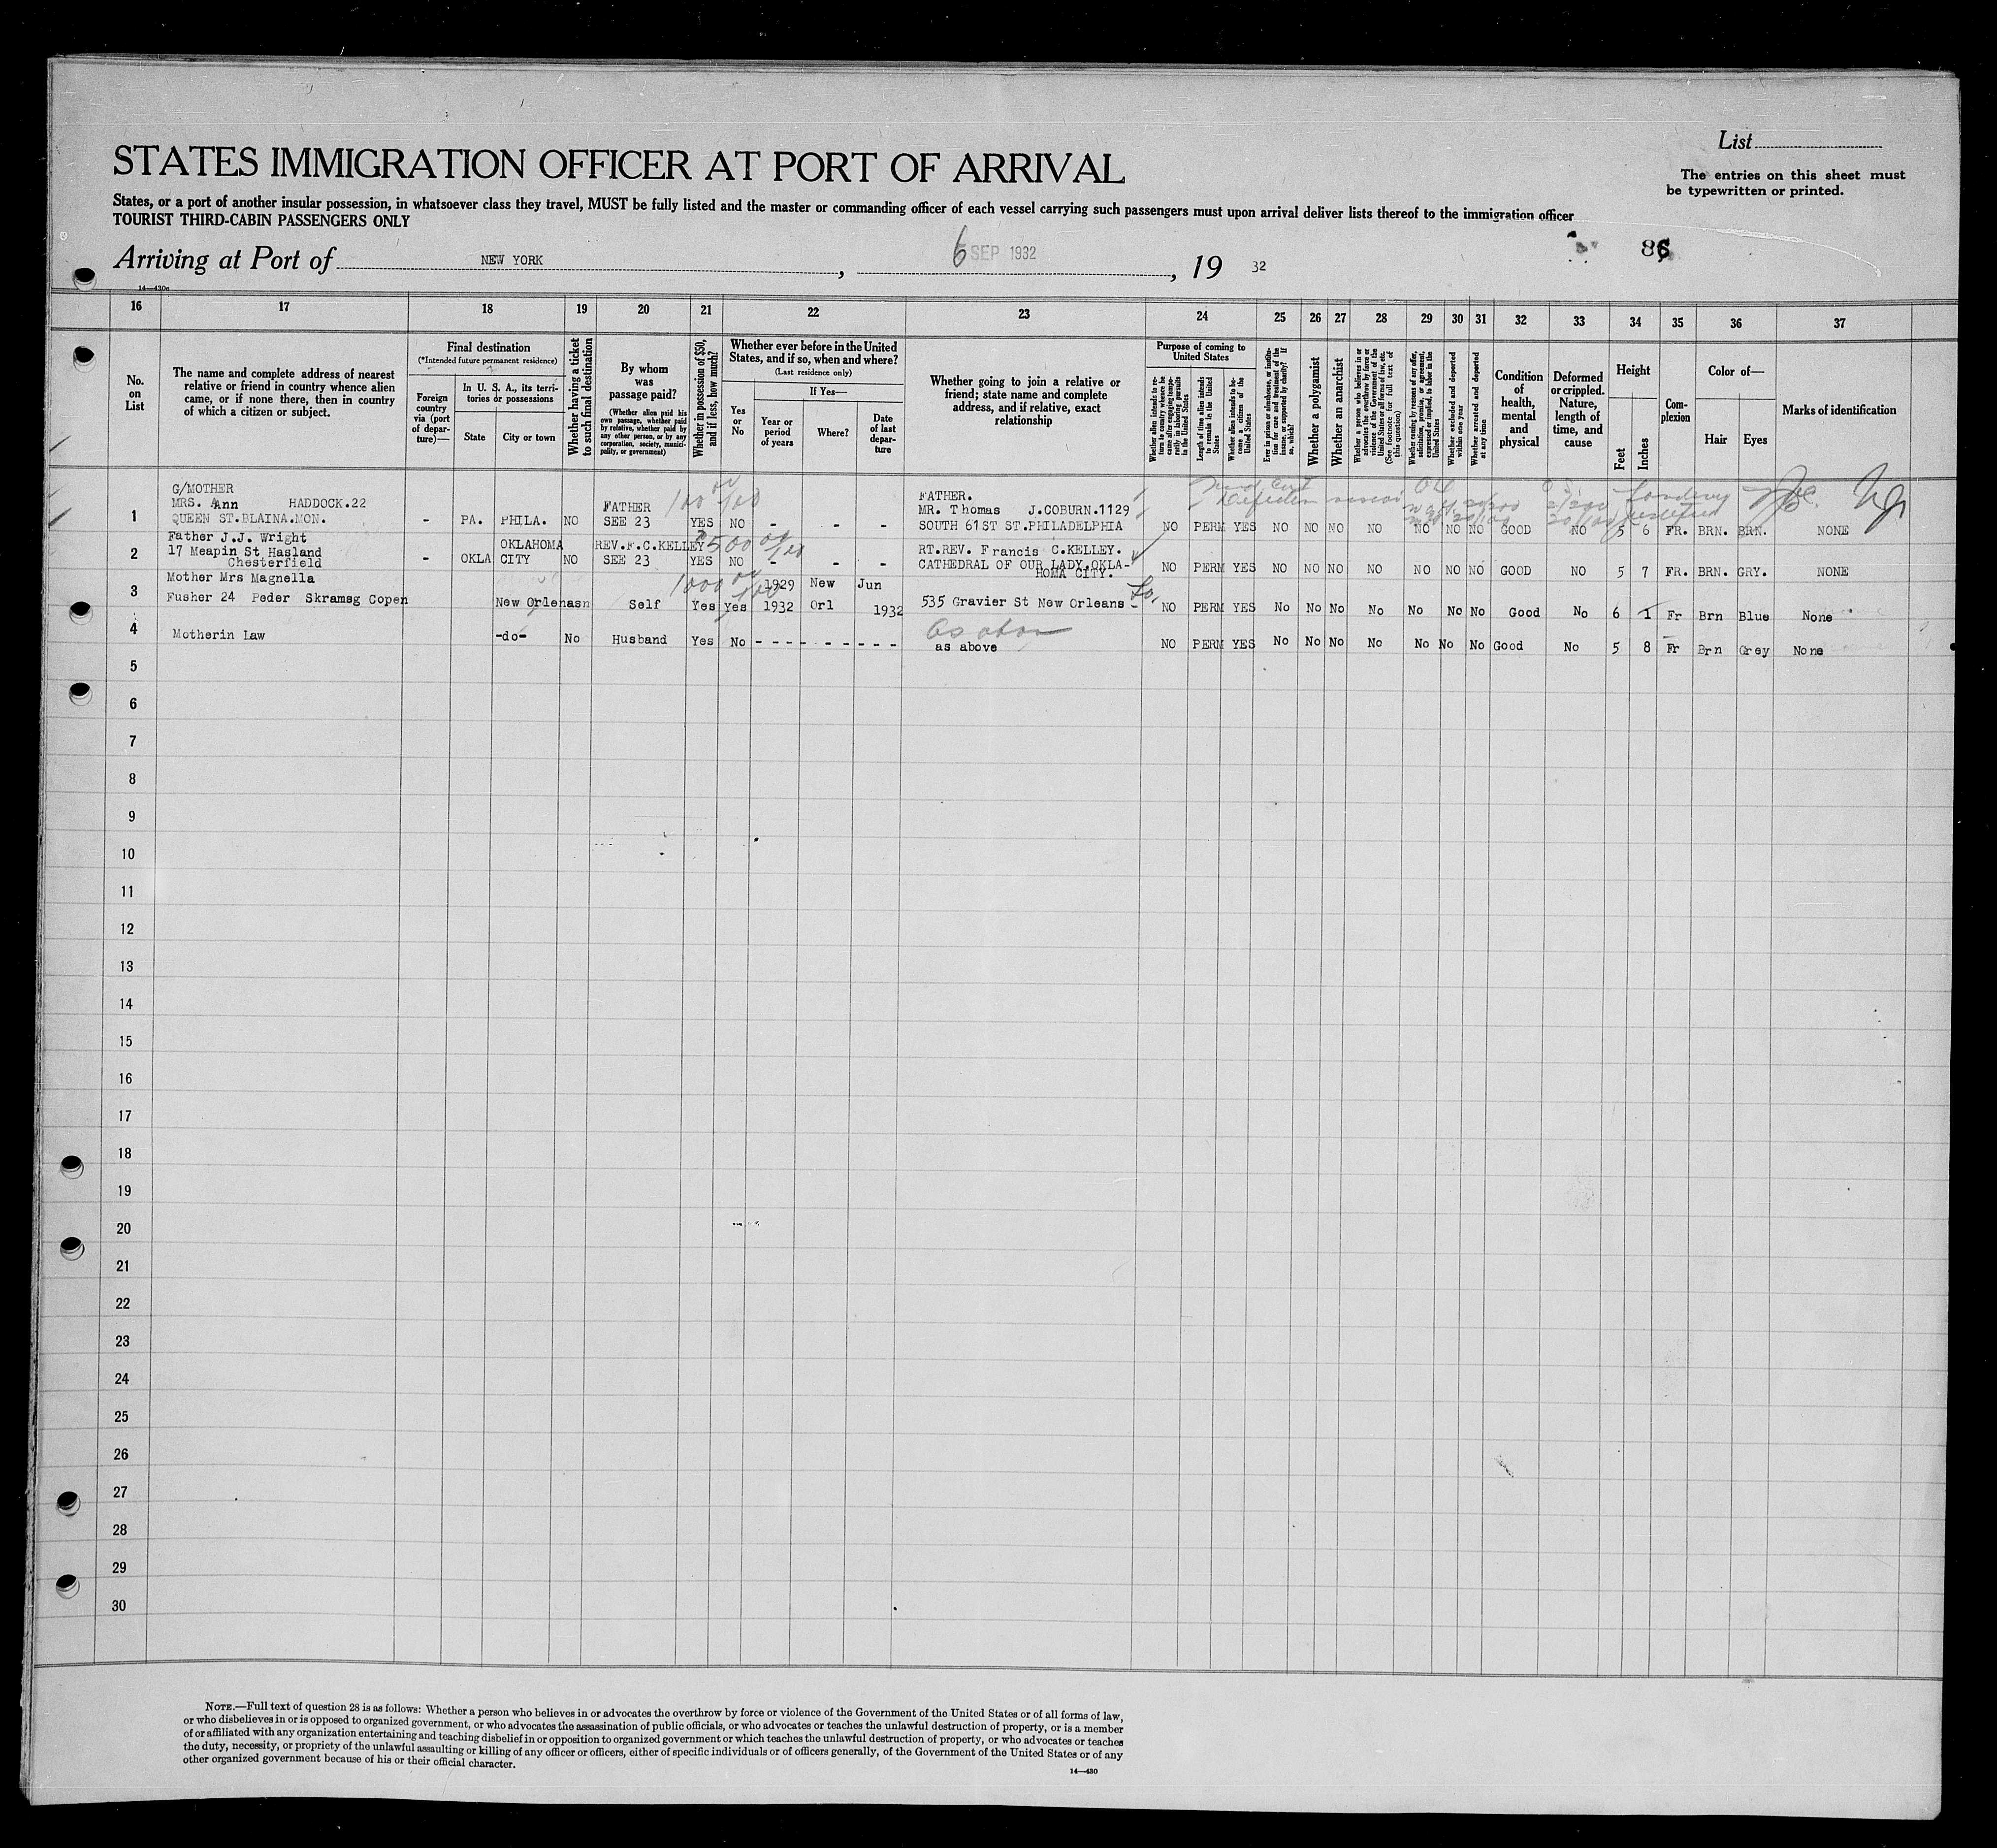 List
STATES IMMIGRATION OFFICER AT PORT OF ARRIVAL
The entries on this sheet must
be typewritten or printed.
States, or a port of another insular possession, in whatsoever class they travel, MUST be fully listed and the master or commanding officer of each vessel carrying such passengers must upon arrival deliver lists thereof to the immigration officer
TOURIST THIRD-CABIN PASSENGERS ONLY
Arriving at Port of NEW YORK, 6 SEP 1932, 19 32
86
14—430c
16 17 18 19 20 21 22 23 24 25 26 27 28 29 30 31 32 33 34 35 36 37
No.
on
List
The name and complete address of nearest
relative or friend in country whence alien
came, or if none there, then in country
of which a citizen or subject.
Final destination
(*Intended future permanent residence)
Foreign
country
via (port
of depar-
ture)—
In U. S. A., its terri-
tories or possessions
State
City or town
Whether having a ticket
to such final destination
By whom
was
passage paid?
(Whether alien paid his
own passage, whether paid
by relative, whether paid by
any other person, or by any
corporation, society, munici-
pality, or government)
Whether in possession of $50,
and if less, how much?
Whether ever before in the United
States, and if so, when and where?
(Last residence only)
Yes
or
No
If Yes—
Year or
period
of years
Where?
Date
of last
depar-
ture
Whether going to join a relative or
friend; state name and complete
address, and if relative, exact
relationship
Purpose of coming to
United States
Whether alien intends to re-
turn to country whence he
came after engaging tempo-
rarily in laboring pursuits
in the United States
Length of time alien intends
to remain in the United
States
Whether alien intends to be-
come a citizen of the
United States
Ever in prison or almshouse, or institu-
tion for care and treatment of the
insane, or supported by charity? If
so, which?
Whether a polygamist
Whether an anarchist
Whether a person who believes in or
advocates the overthrow by force or
violence of the Government of the
United States or all forms of law, etc.
(See footnote for full text of
this question)
Whether coming by reasons of any offer,
solicitation, promise, or agreement,
expressed or implied, to labor in the
United States
Whether excluded and deported
within one year
Whether arrested and deported
at any time
Condition
of
health,
mental
and
physical
Deformed
or crippled.
Nature,
length of
time, and
cause
Height
Feet
Inches
Com-
plexion
Color of—
Hair
Eyes
Marks of identification
G/MOTHER
MRS. Ann HADDOCK.22
1 QUEEN ST.BLAINA.MON. - PA. PHILA. NO FATHER SEE 23 YES NO - - - 100 00/100
FATHER.
MR. Thomas J.COBURN.1129
SOUTH 61ST ST.PHILADELPHIA NO PERM YES NO NO NO NO NO NO NO GOOD NO 5 6 FR. BRN. BRN. NONE
Father J.J. Wright
2 17 Meapin St Hasland
Chesterfield - OKLA OKLAHOMA CITY NO REV.F.C.KELLEY SEE 23 YES NO - - - 500 00/100
RT.REV. Francis C.KELLEY.
CATHEDRAL OF OUR LADY.OKLA-
HOMA CITY. NO PERM YES NO NO NO NO NO NO NO GOOD NO 5 7 FR. BRN. GRY. NONE
Mother Mrs Magnella 1000 00/100 1929 New Jun
3 Fusher 24 Peder Skramsg Copen New Orlenasn Self Yes Yes 1932 Orl 1932 535 Gravier St New Orleans La. NO PERM YES No No No No No No No Good No 6 1 Fr Brn Blue None
4 Motherin Law -do- No Husband Yes No - - - - - - - - - as above
as above NO PERM YES No No No No No No No Good No 5 8 Fr Brn Grey None
5
6
7
8
9
10
11
12
13
14
15
16
17
18
19
20
21
22
23
24
25
26
27
28
29
30
NOTE.—Full text of question 28 is as follows: Whether a person who believes in or advocates the overthrow by force or violence of the Government of the United States or of all forms of law,
or who disbelieves in or is opposed to organized government, or who advocates the assassination of public officials, or who advocates or teaches the unlawful destruction of property, or is a member
of or affiliated with any organization entertaining and teaching disbelief in or opposition to organized government or which teaches the unlawful destruction of property, or who advocates or teaches
the duty, necessity, or propriety of the unlawful assaulting or killing of any officer or officers, either of specific individuals or of officers generally, of the Government of the United States or of any
other organized government because of his or their official character.
14—430